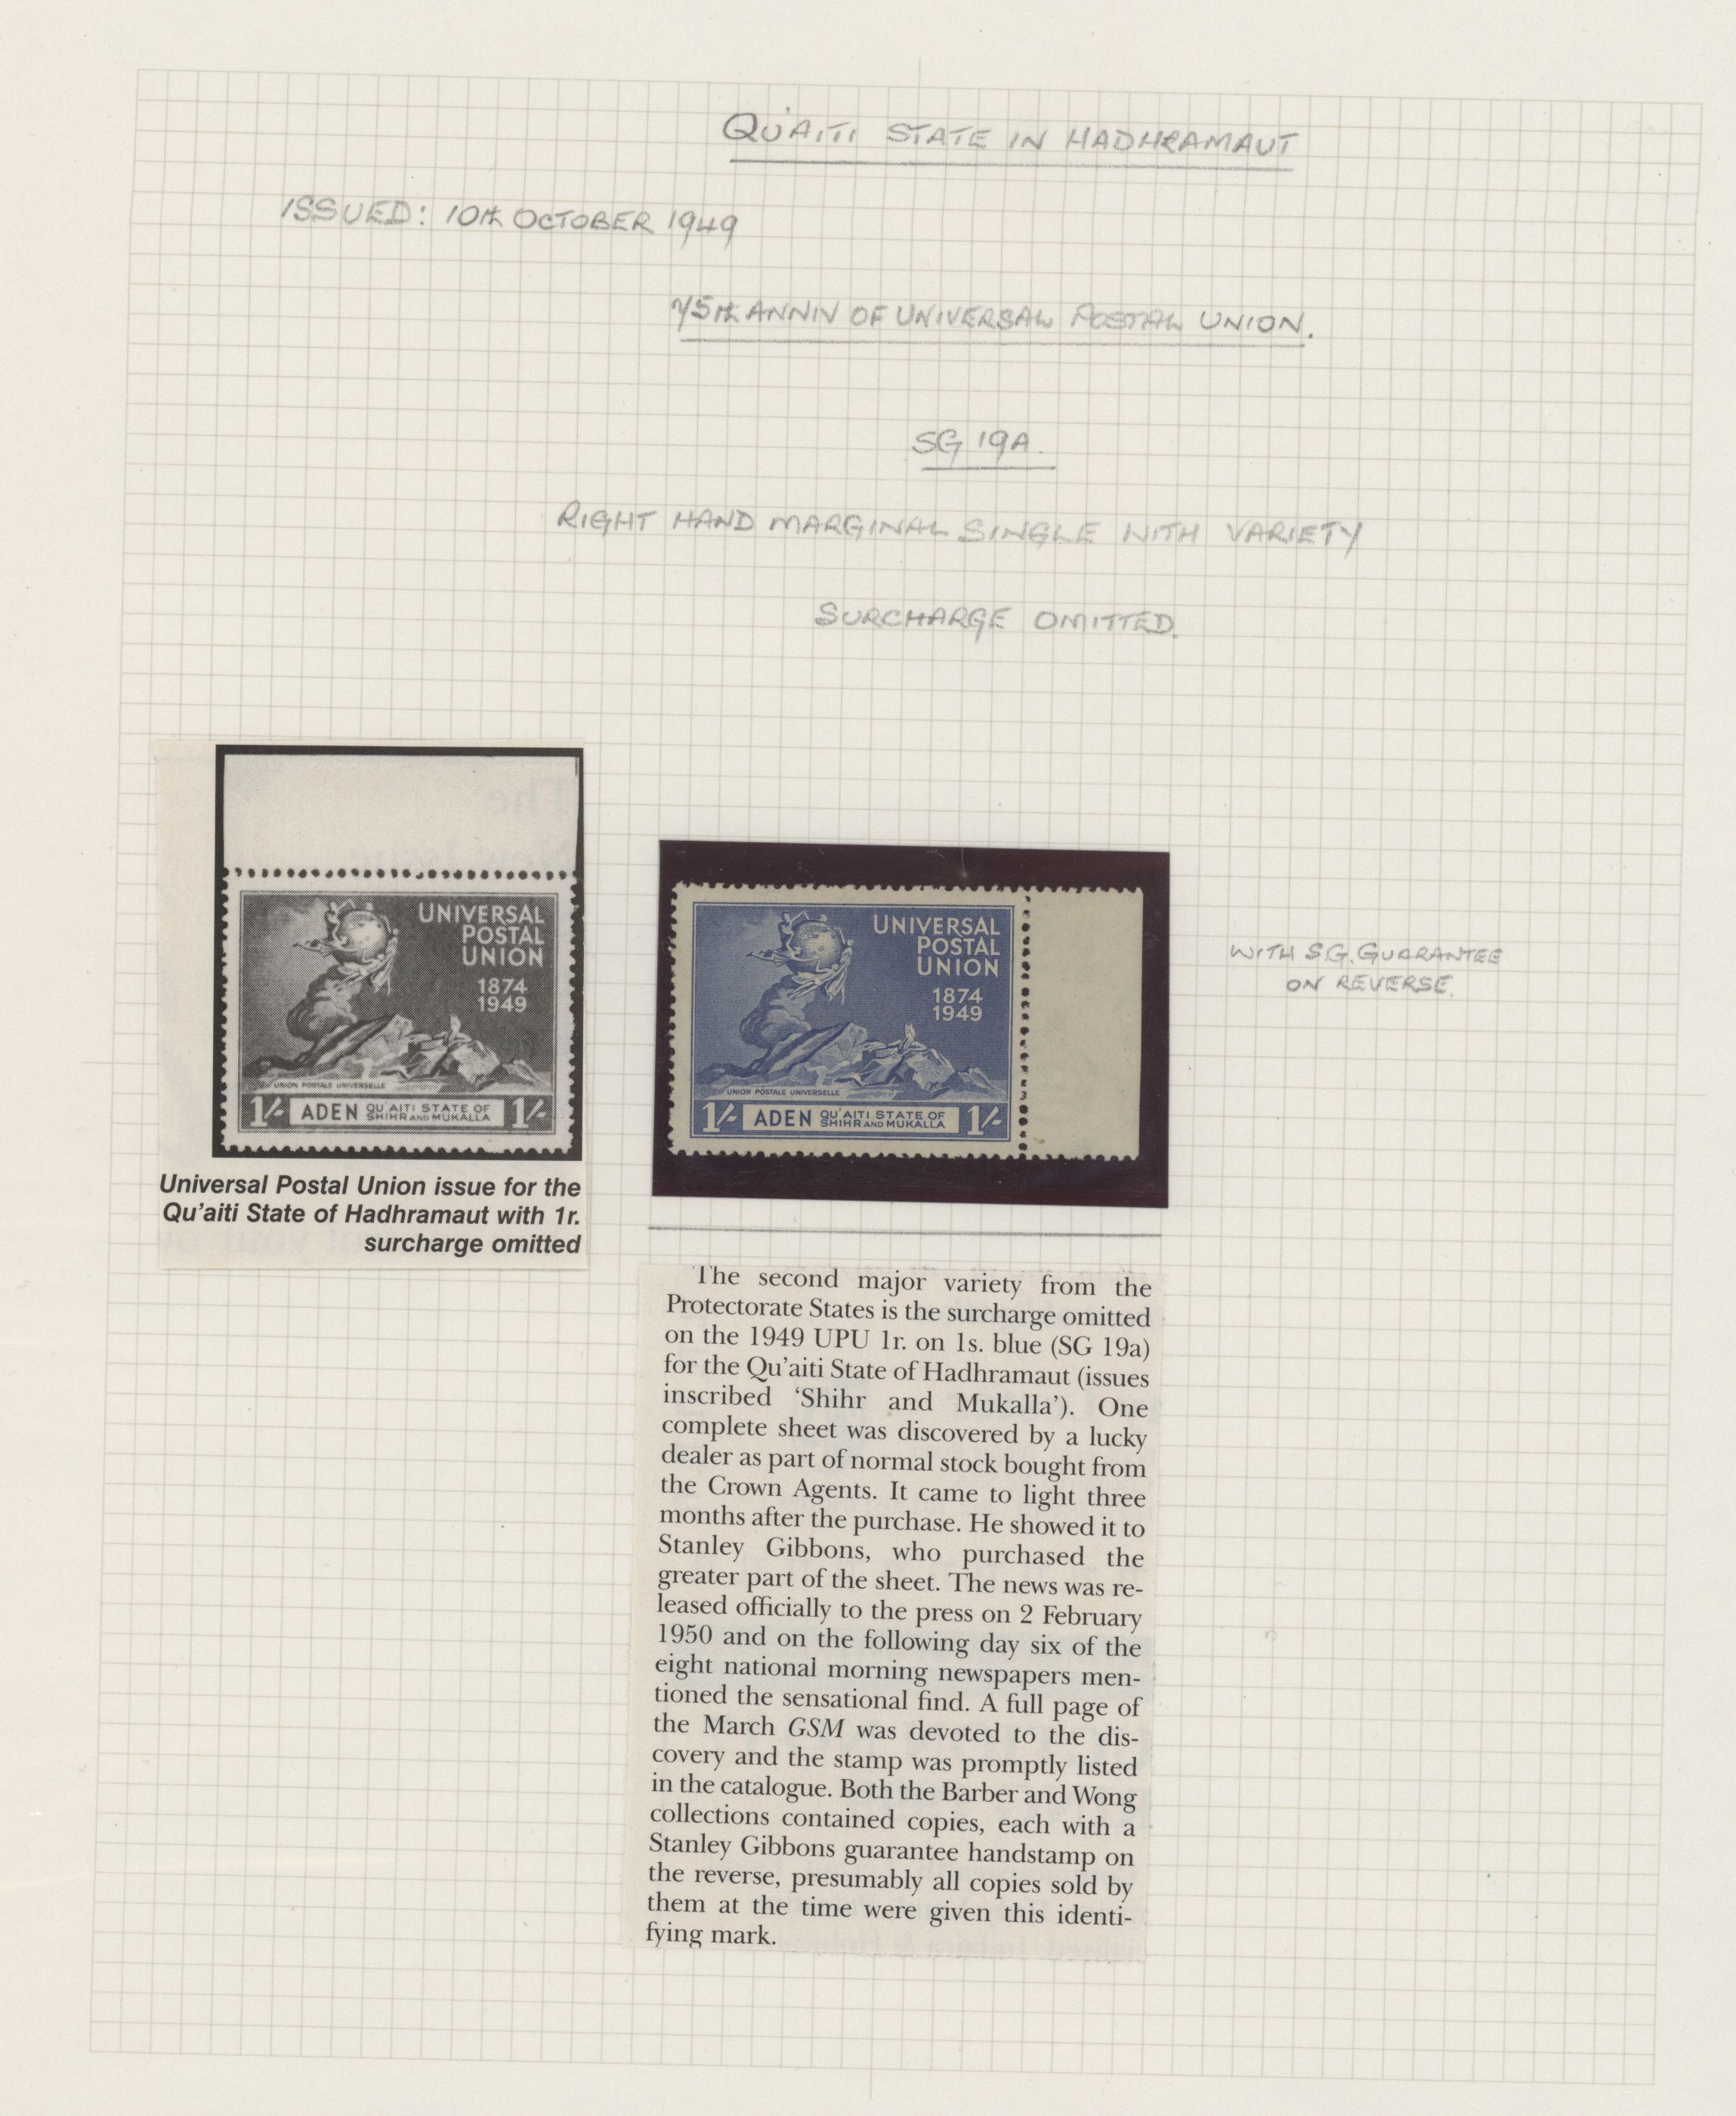 QU'AITI STATE IN HADHRAMAUT
ISSUED: 10th OCTOBER 1949
75th ANNIV OF UNIVERSAL POSTAL UNION.
SG 19A.
RIGHT HAND MARGINAL SINGLE WITH VARIETY
SURCHARGE OMITTED.
UNIVERSAL
POSTAL
UNION
1874
1949
UNION POSTALE UNIVERSELLE
1/- ADEN QU'AITI STATE OF SHIHR AND MUKALLA 1/-
Universal Postal Union issue for the
Qu'aiti State of Hadhramaut with 1r.
surcharge omitted
UNIVERSAL
POSTAL
UNION
1874
1949
UNION POSTALE UNIVERSELLE
1/- ADEN QU'AITI STATE OF SHIHR AND MUKALLA 1/-
WITH S.G. GUARANTEE
ON REVERSE.
The second major variety from the
Protectorate States is the surcharge omitted
on the 1949 UPU 1r. on 1s. blue (SG 19a)
for the Qu'aiti State of Hadhramaut (issues
inscribed 'Shihr and Mukalla'). One
complete sheet was discovered by a lucky
dealer as part of normal stock bought from
the Crown Agents. It came to light three
months after the purchase. He showed it to
Stanley Gibbons, who purchased the
greater part of the sheet. The news was re-
leased officially to the press on 2 February
1950 and on the following day six of the
eight national morning newspapers men-
tioned the sensational find. A full page of
the March GSM was devoted to the dis-
covery and the stamp was promptly listed
in the catalogue. Both the Barber and Wong
collections contained copies, each with a
Stanley Gibbons guarantee handstamp on
the reverse, presumably all copies sold by
them at the time were given this identi-
fying mark.